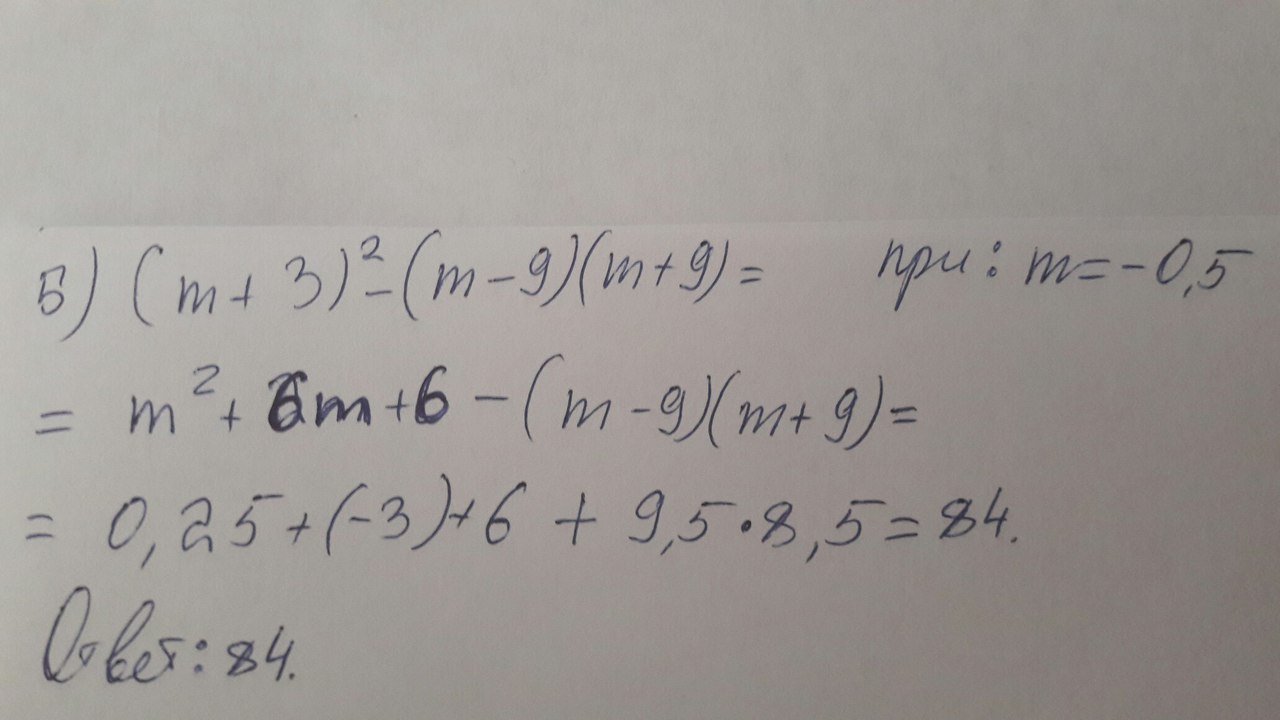 5) (m + 3)² - (m - 9)(m + 9) = при: m = -0,5
= m² + 6m + 6 - (m - 9)(m + 9) =
= 0,25 + (-3) + 6 + 9,5 · 8,5 = 84.
Ответ: 84.